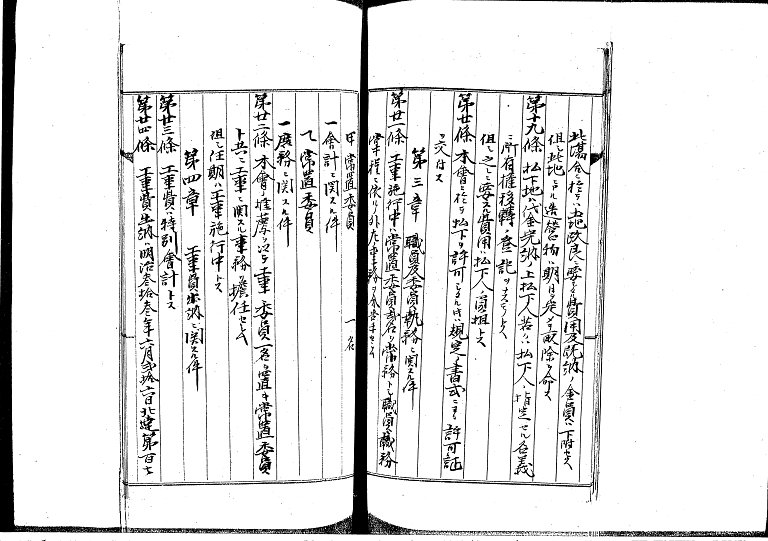 此場合ニ於テハ土地改良ニ要セシ費用及既納ノ金員ハ下附セス
但シ此地ニヨル造営物ハ期日ヲ定メテ取除ヲ命ス
第十九條 払下地ハ代金完納ノ上払下人若クハ払下人ノ指定セル名義
ニ所有権移轉ノ登記ヲナスモノトス
但シ之レニ要スル費用ハ払下人ノ負担トス
第廿條 本會ニ於テ払下ヲ許可シタルトキハ規定ノ書式ニヨリ許可証
ヲ交付ス
第三章 職員及委員執務ニ関スル件
第廿一條 工事施行中ハ常置委員弐名ヲ常務トシ職員ハ職務
章程ニ依ルノ外左ノ事務ヲ分掌セシム
甲 常置委員 一名
一會計ニ関スル件
乙 常置委員
一庶務ニ関スル件
第廿二條 本會ノ推薦ニヨリ工事委員一名ヲ置キ常置委員
ト共ニ工事ニ関スル事務ヲ擔任セシム
但シ任期ハ工事施行中トス
第四章 工事費出納ニ関スル件
第廿三條 工事費ハ特別會計トス
第廿四條 工事費出納ハ明治参拾参年六月弐拾六日北建第百七